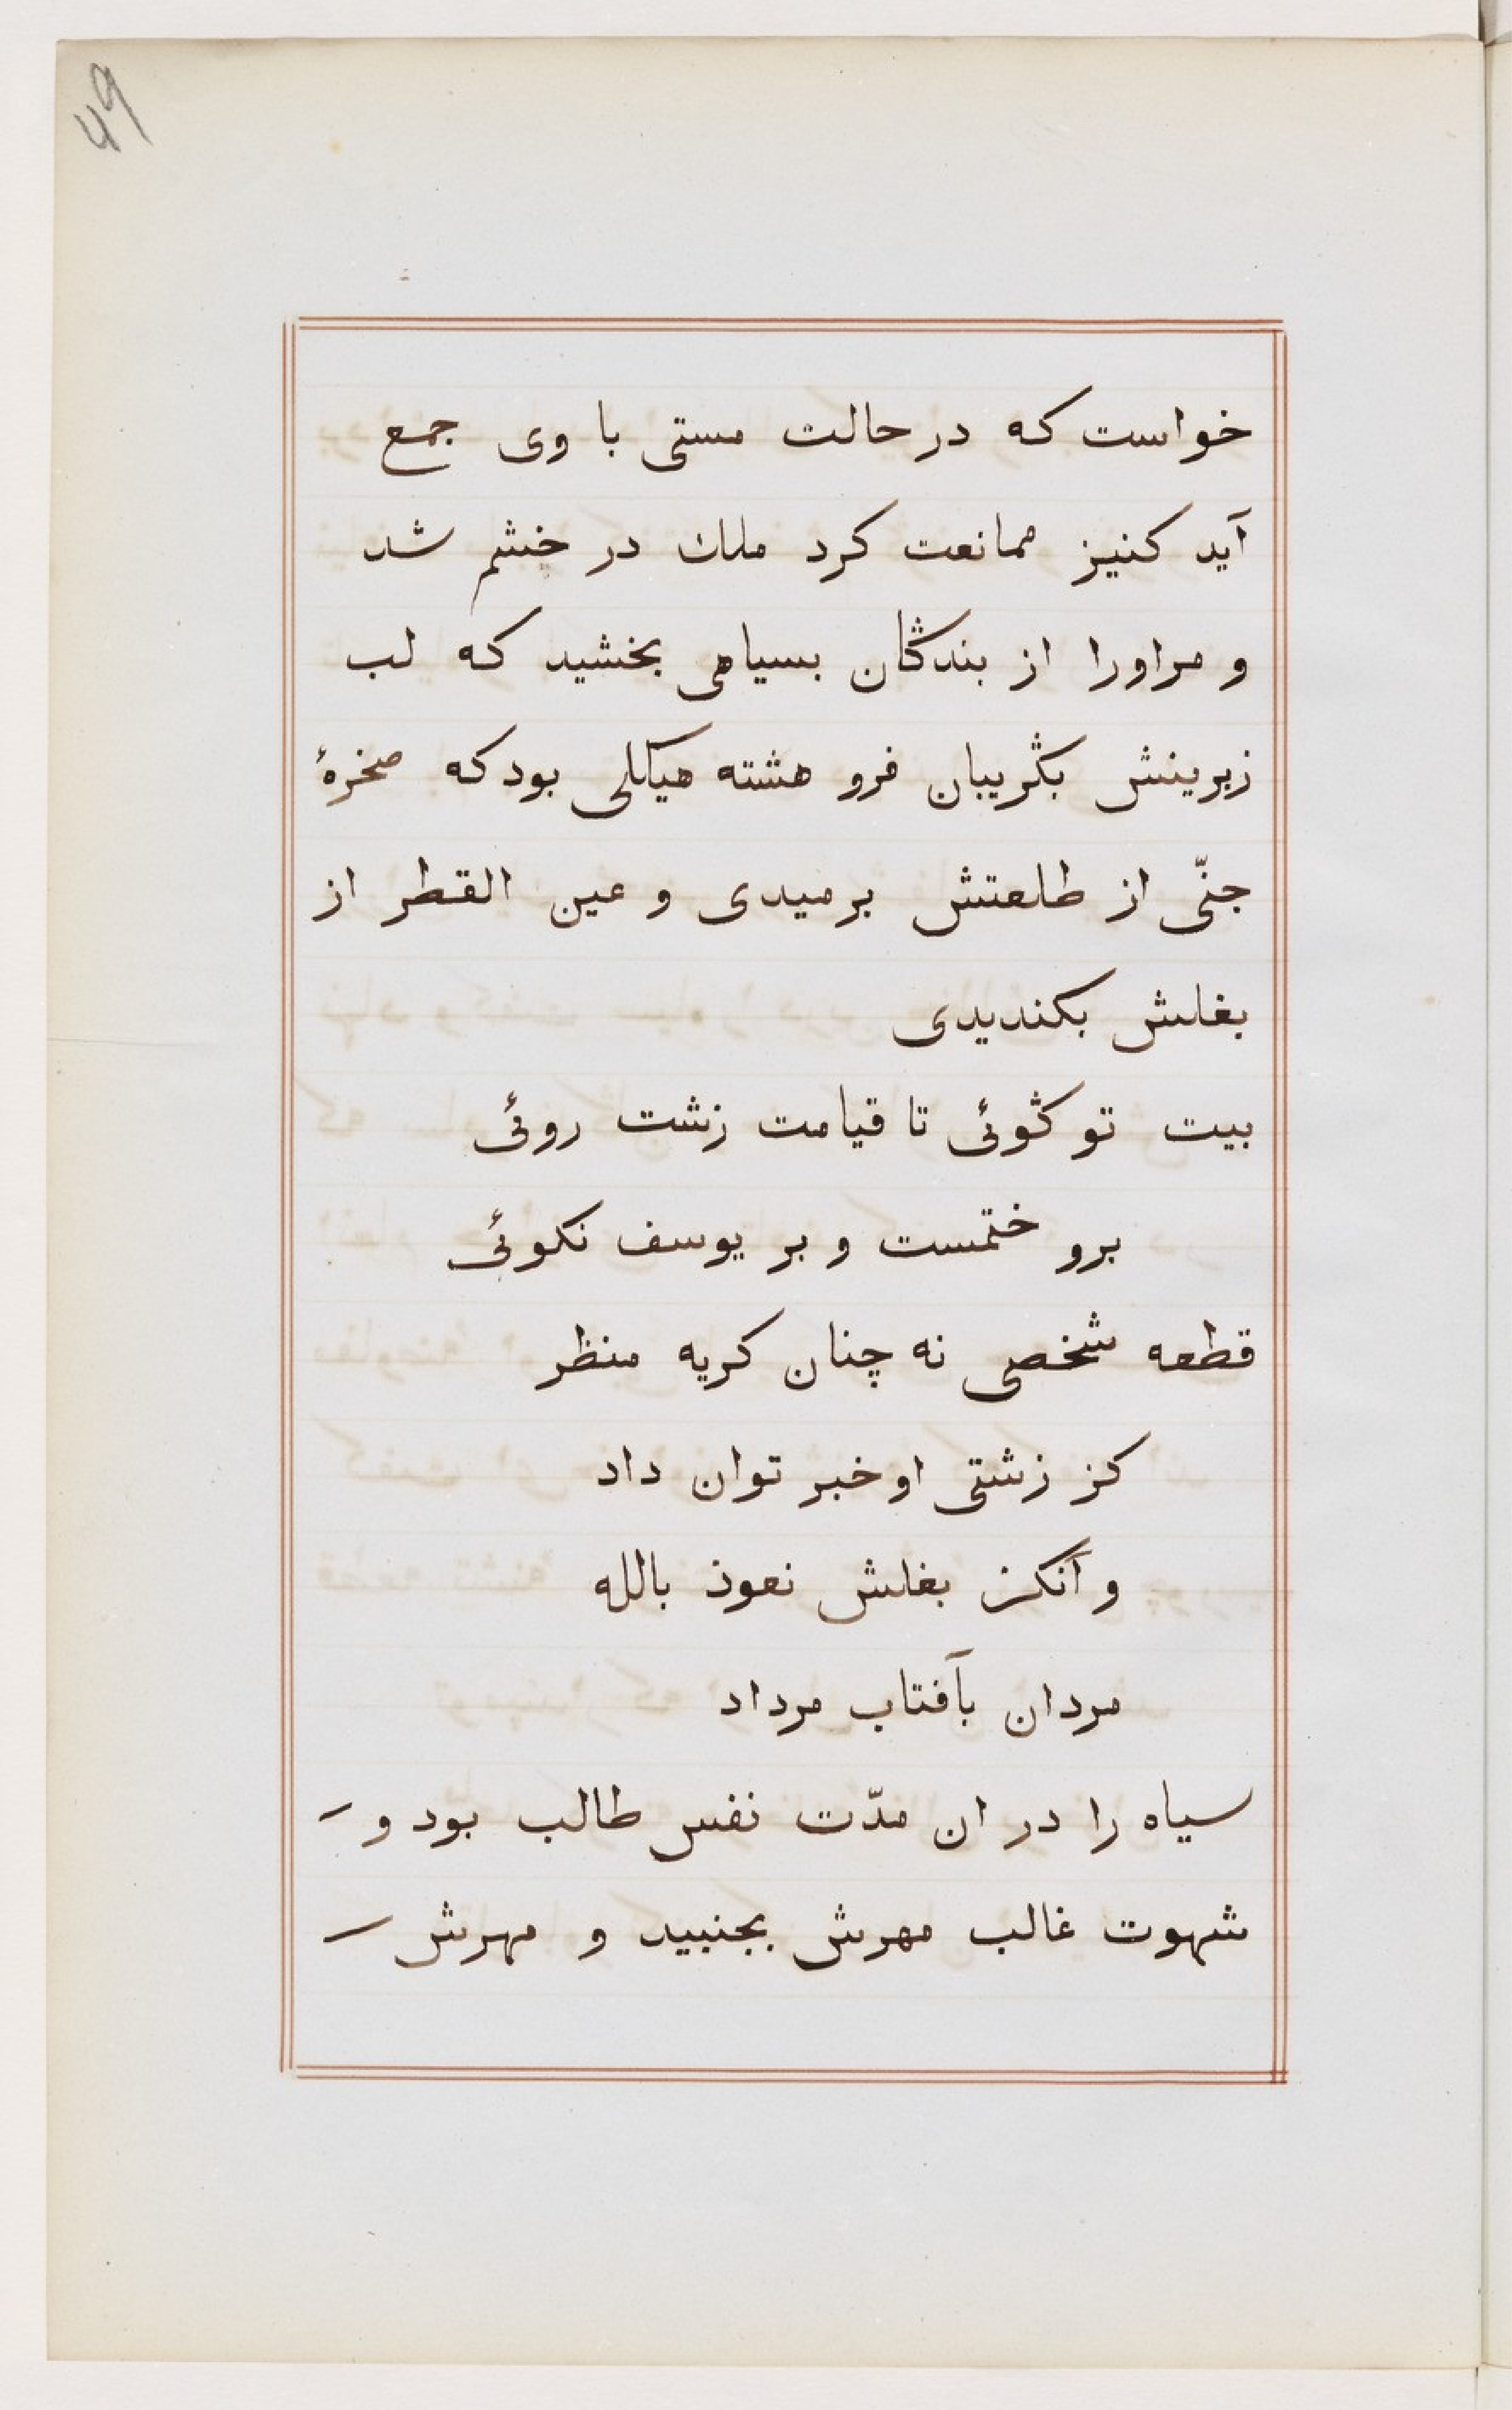 49
خواست که در حالت مستی با وی جمع
آید کنیز ممانعت کرد ملك در خشم شد
و مراورا از بندگان بسیاهی بخشید که لب
زبرینش بگریبان فرو هشته هیکلی بود که صخرهٔ
جنّی از طلعتش برمیدی و عین القطر از
بغلش بکندیدی
بیت تو گوئی تا قیامت زشت روئی
برو ختمست و بر یوسف نکوئی
قطعه شخصی نه چنان کریه منظر
کز زشتی او خبر توان داد
و آنکز بغلش نعوذ بالله
مردان بآفتاب مرداد
سیاه را در ان مدّت نفس طالب بود و
شهوت غالب مهرش بجنبید و مهرش